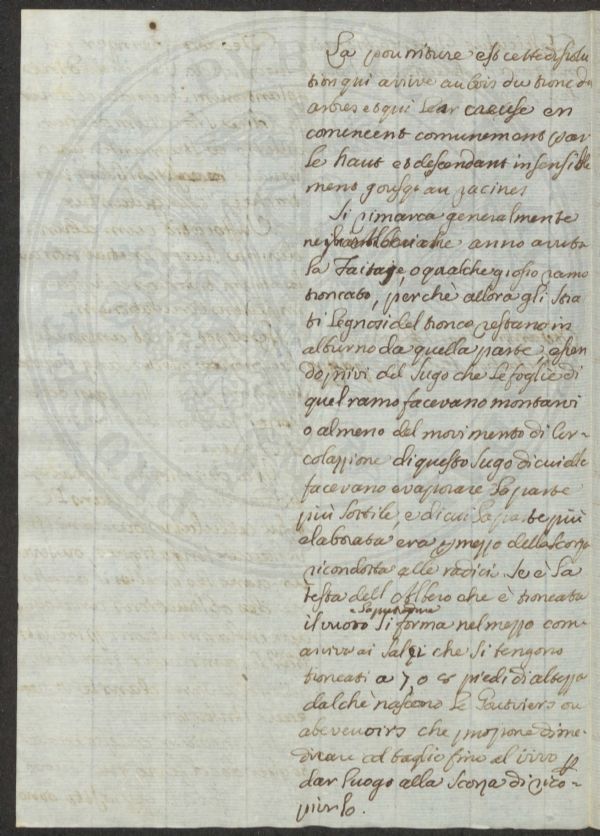 La pourriture est cette dissolu
tion qui arrive au bois du tronc des
arbres et qui lear creuse en
comincent comunement par
le haut et descendant insensible
ment gousqu au racines
Si rimarca generalmente
negli alberi che anno avuta
la Taitaje, o qualche grosso ramo
troncato, perchè allora gli stra
ti Legnosi del tronco restano in
alburno da quella parte, essen
do privi del Sugo che le foglie di
quel ramo facevano montarvi
o almeno del movimento di Cir-
colazzione di questo Sugo di cui elle
facevano evaporare la parte
più sottile, e di cui la parte più
elaborata era p mezzo della Scorza
ricondotta alle radici. Se è la
testa dell'Albero che è troncata
e la putredine
il vuoto si forma nel mezzo com
arriva ai Salci che si tengono
troncati a 7, o 8 piedi di altezza
dal chè nascono Le Goutviers ou
abevenoirs che propone di me
dicare col taglio fino al vivo p
dar luogo alla Scorza di rico-
pirlo.